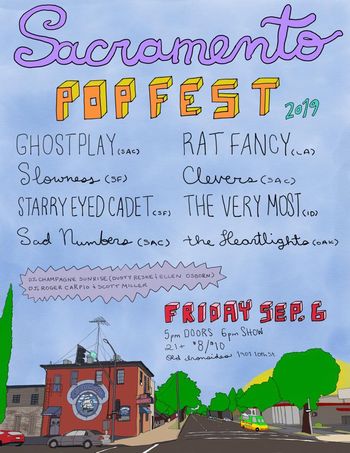 Sacramento
POPFEST 2019
GHOSTPLAY (SAC) RAT FANCY (LA)
Slowness (SF) Clevers (SAC)
STARRY EYED CADET (SF) THE VERY MOST (ID)
Sad Numbers (SAC) the Heartlights (OAK)
DJs CHAMPAGNE SUNRISE (DUSTY RESKE & ELLEN OSBORN)
DJs ROGER CARPIO & SCOTT MILLER
FRIDAY SEP. 6
5pm DOORS 6pm SHOW
21+ $8/$10
Old Ironsides 1901 10th St